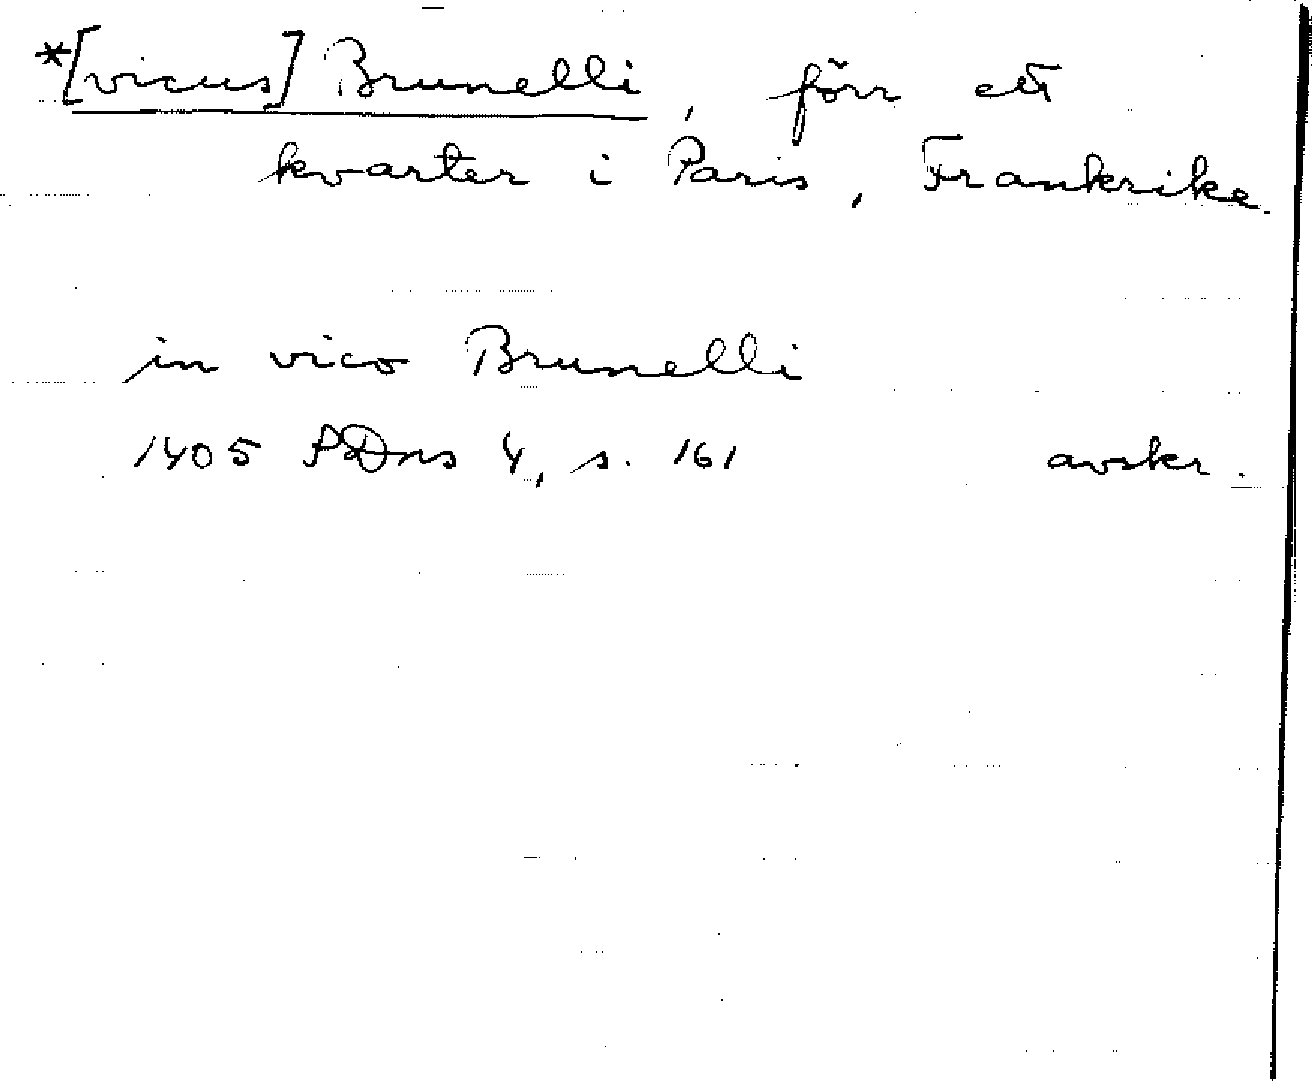 *[vicus] Brunelli, förr ett
kvarter i Paris, Frankrike.
in vico Brunelli
1405 SDns 4, s. 161 avskr.